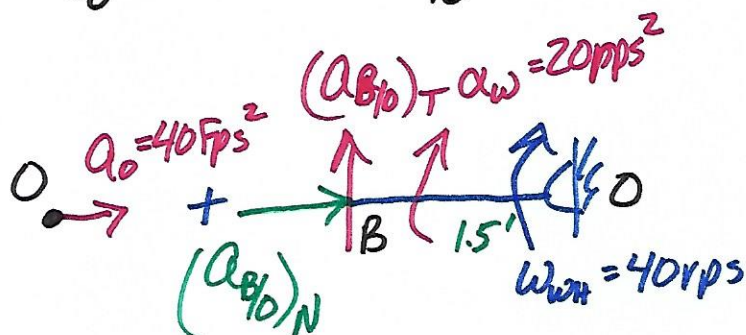 (a_B/O)_T α_W = 20rps²
a_O = 40 Fps²
O + B 1.5' O
(a_B/O)_N
ω_WH = 40rps